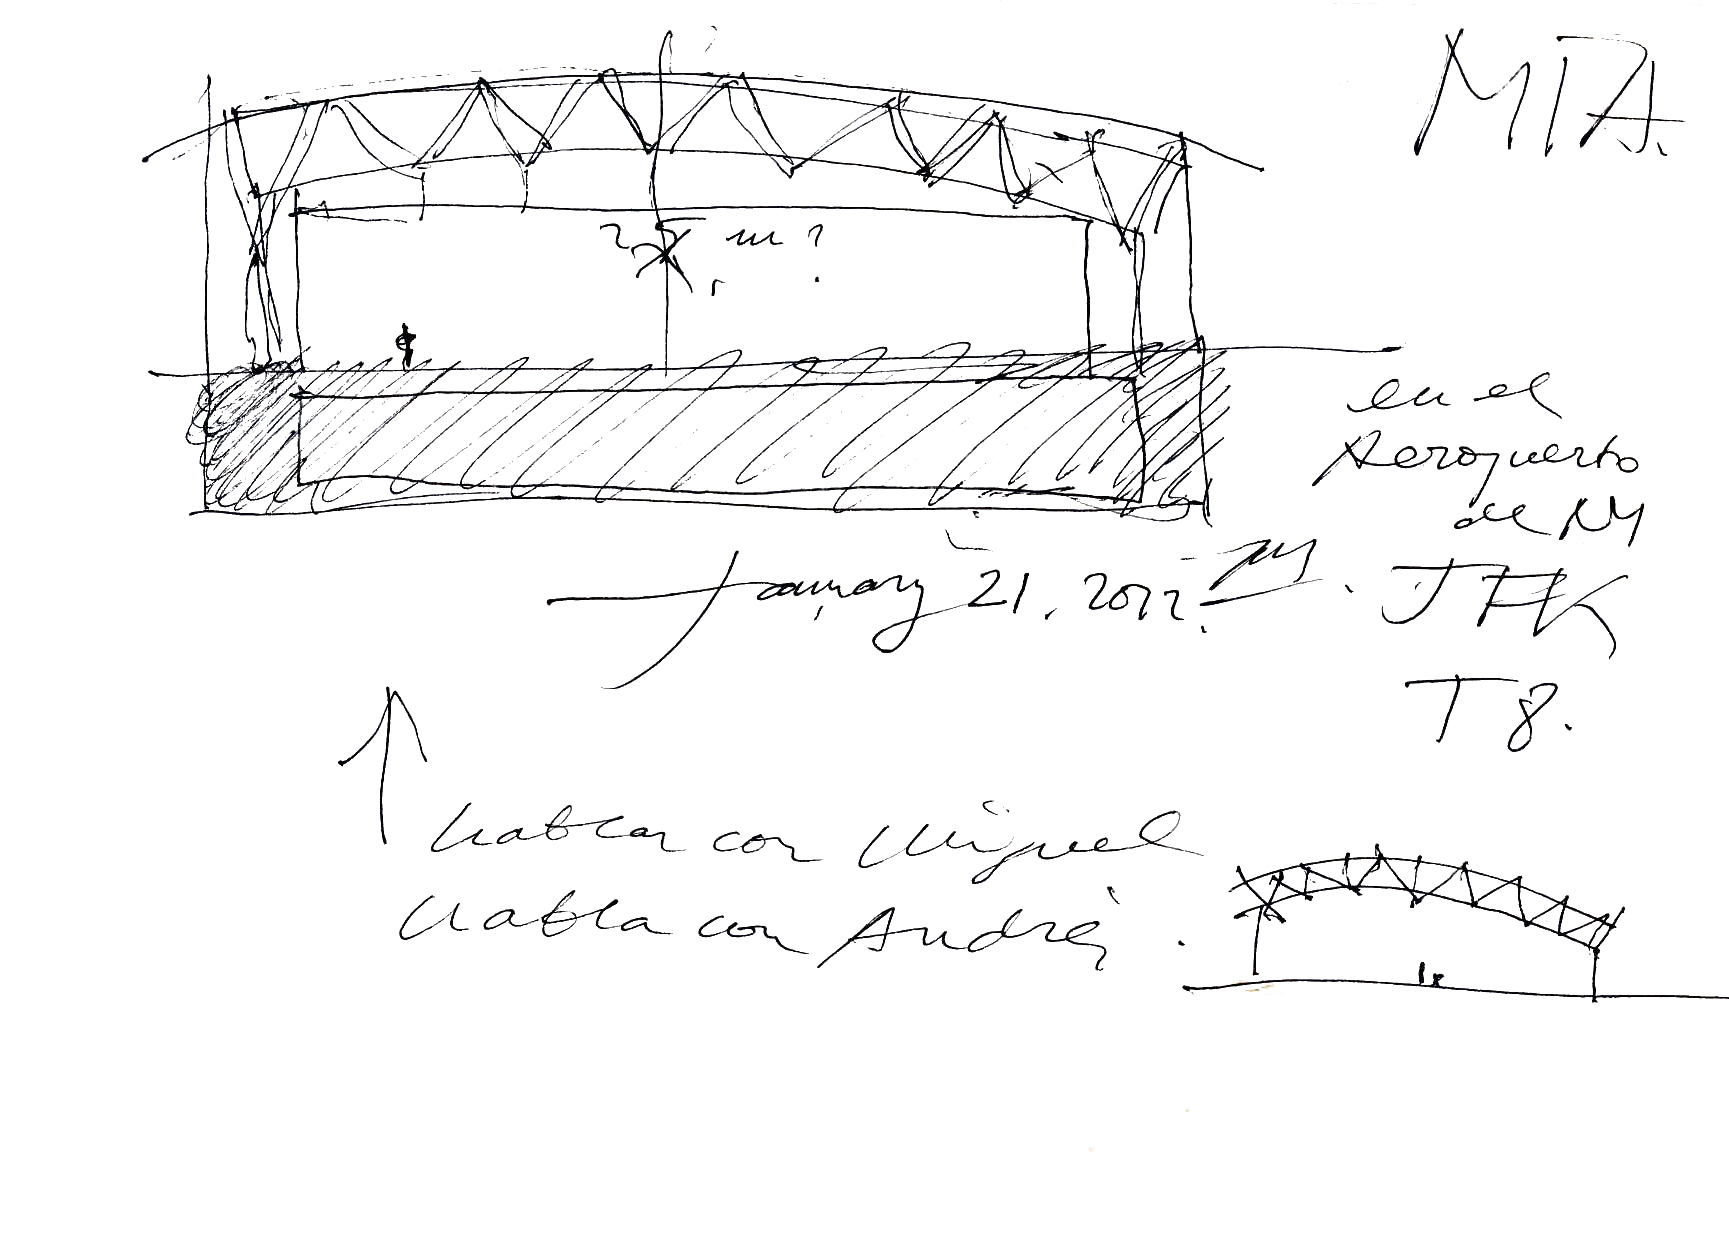 MIA.
25 m?
en el
Aeropuerto
de NY
January 21, 2012.
JFK
T 8.
hablar con Miguel
habla con Andrés.